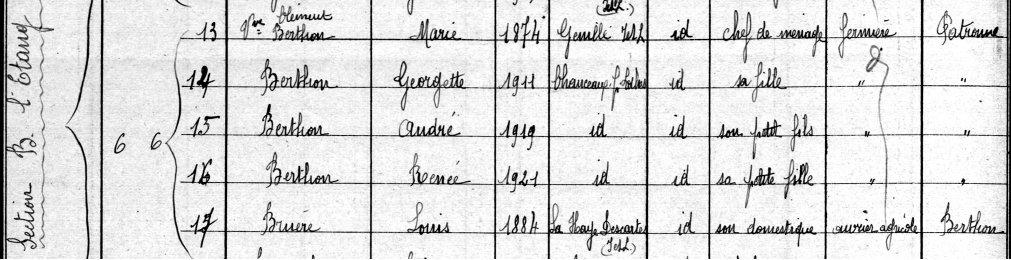 Section B. l'Etang
6 6
13 Vve Clément Berthon Marie 1874 Genillé I&L id chef de ménage fermière Patronne
14 Berthon Georgette 1911 id sa fille " "
15 Berthon André 1919 id id son petit fils " "
16 Berthon Renée 1921 id id sa petite fille " "
17 Brière Louis 1884 La Haye Descartes (I&L) id son domestique ouvrier agricole Berthon